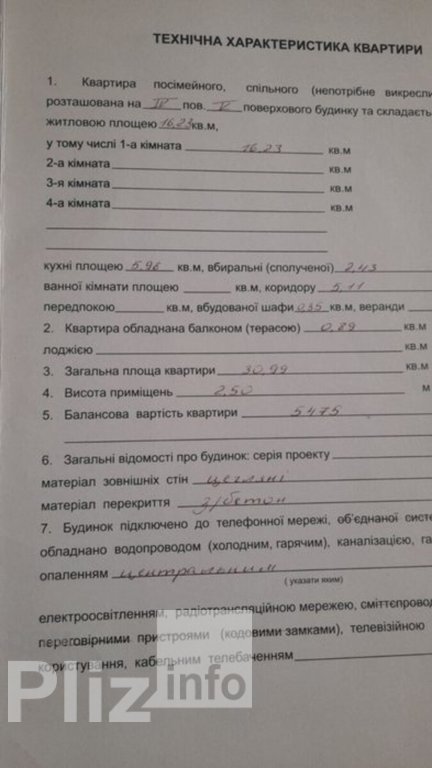 ТЕХНІЧНА ХАРАКТЕРИСТИКА КВАРТИРИ
1. Квартира посімейного, спільного (непотрібне викресли
розташована на IV пов. V поверхового будинку та складаєть
житловою площею 16,23 кв.м,
у тому числі 1-а кімната 16,23 кв.м
2-а кімната кв.м
3-я кімната кв.м
4-а кімната кв.м
кухні площею 5,96 кв.м, вбиральні (сполученої) 2,43
ванної кімнати площею кв.м, коридору 5,11
передпокою кв.м, вбудованої шафи 0,35 кв.м, веранди
2. Квартира обладнана балконом (терасою) 0,89 кв.м
лоджією кв.м
3. Загальна площа квартири 30,99 кв.м
4. Висота приміщень 2,50 м
5. Балансова вартість квартири 5475
6. Загальні відомості про будинок: серія проекту
матеріал зовнішніх стін цегляні
матеріал перекриття з/бетон
7. Будинок підключено до телефонної мережі, об'єднаної систе
обладнано водопроводом (холодним, гарячим), каналізацією, га
опаленням центральним
(указати яким)
електроосвітленням, радіотрансляційною мережею, сміттєпровод
переговірними пристроями (кодовими замками), телевізійною
користування, кабельним телебаченням
Pliz info